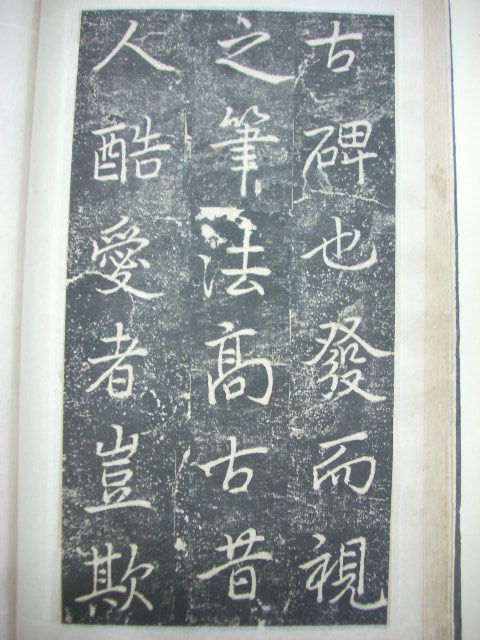 古碑也發而視
之筆法髙古昔
人酷愛者豈欺